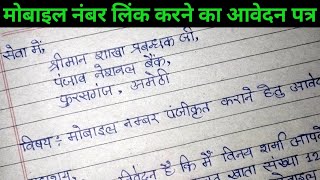 मोबाइल नंबर लिंक करने का आवेदन पत्र
सेवा में,
श्रीमान शाखा प्रबन्धक जी,
पंजाब नेशनल बैंक,
फुरसतगंज, अमेठी
विषय: मोबाइल नम्बर पंजीकृत कराने हेतु आवे
निवेदन है कि मैं विनय शर्मा आपके
खाता संख्या 12